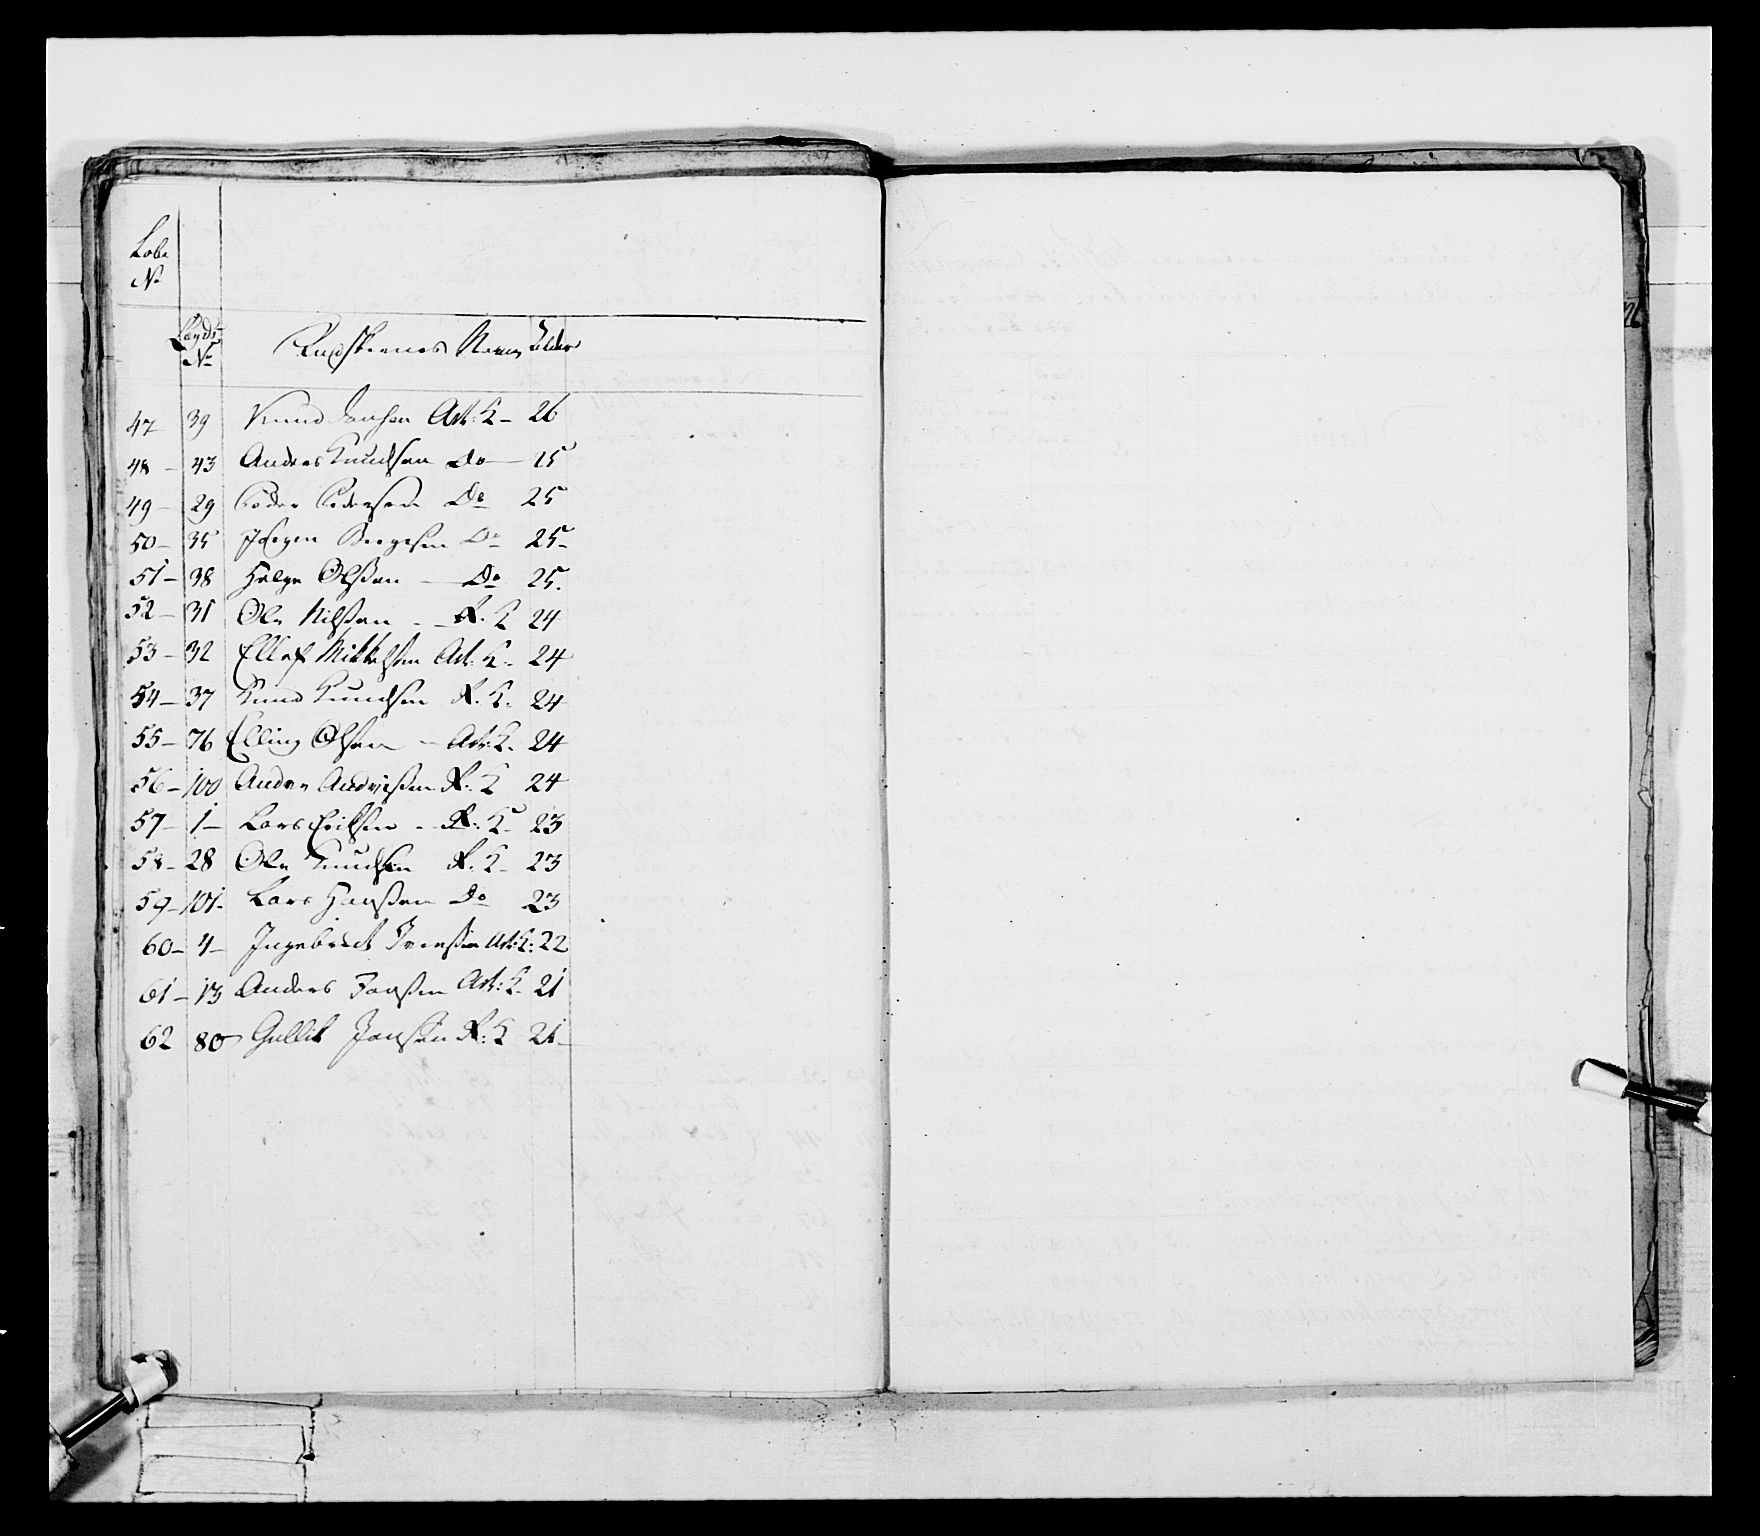 Løbe
No
Lægds
No
Navn Alder
47 39 Knud Jensen Art: K - 26
48 - 43 Anders Knudsen Do - 25
49 - 29 Peder Pedersen Do 25
50 - 35 Jørgen Do 25 -
51 - 38 Helge Olssen - Do 25.
52 - 31 Ole Nilssen - R. K 24
53 - 32 Ellef Mikkelsen Art: K. 24
54 - 37 Knud Knudsen R. K. 24
55 - 76 Elling Olsen - Art: K. 24
56 - 100 Andre Andrissen R. K 24
57 - 1 - Lars Eriksen - R: K - 23
58 - 28 Ole Knudsen R. K - 23
59 - 101 - Lars Hanssen Do 23
60 - 4 - Ingebrict Iverssen Art: K: 22
61 - 13 Anders Art: K - 21
62 80 Gullik Jonsen R: K 21 -
26